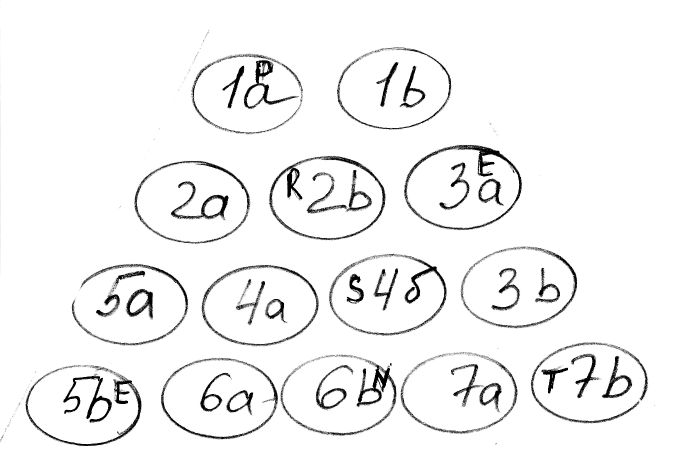 1a P 1b
2a R 2b 3a E
5a 4a S 4б 3b
5b E 6a 6b N 7a T 7b